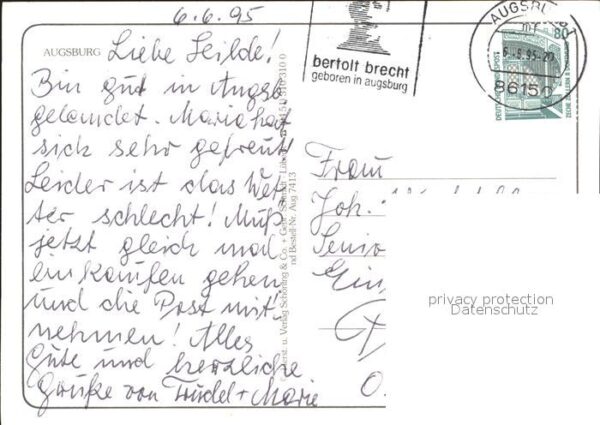 6.6.95
AUGSBURG
Liebe Hilde!
Bin gut in Augsb
gelandet. Maria hat
sich sehr gefreut!
Leider ist das Wet-
ter schlecht! Muß
jetzt gleich mal
einkaufen gehen
und die Post mit-
nehmen! Alles
Gute und herzliche
Grüße von Trudel + Marie
bertolt brecht
geboren in augsburg
AUGSBURG
-6.-6.95-20
86150
80
DEUTSCHE BUNDESPOST
Frau
Joh.
Senio
Ein
privacy protection
Datenschutz
u. Verlag Schöning & Co. + Gebr. Schmidt
nd Bestell-Nr. Aug 7413